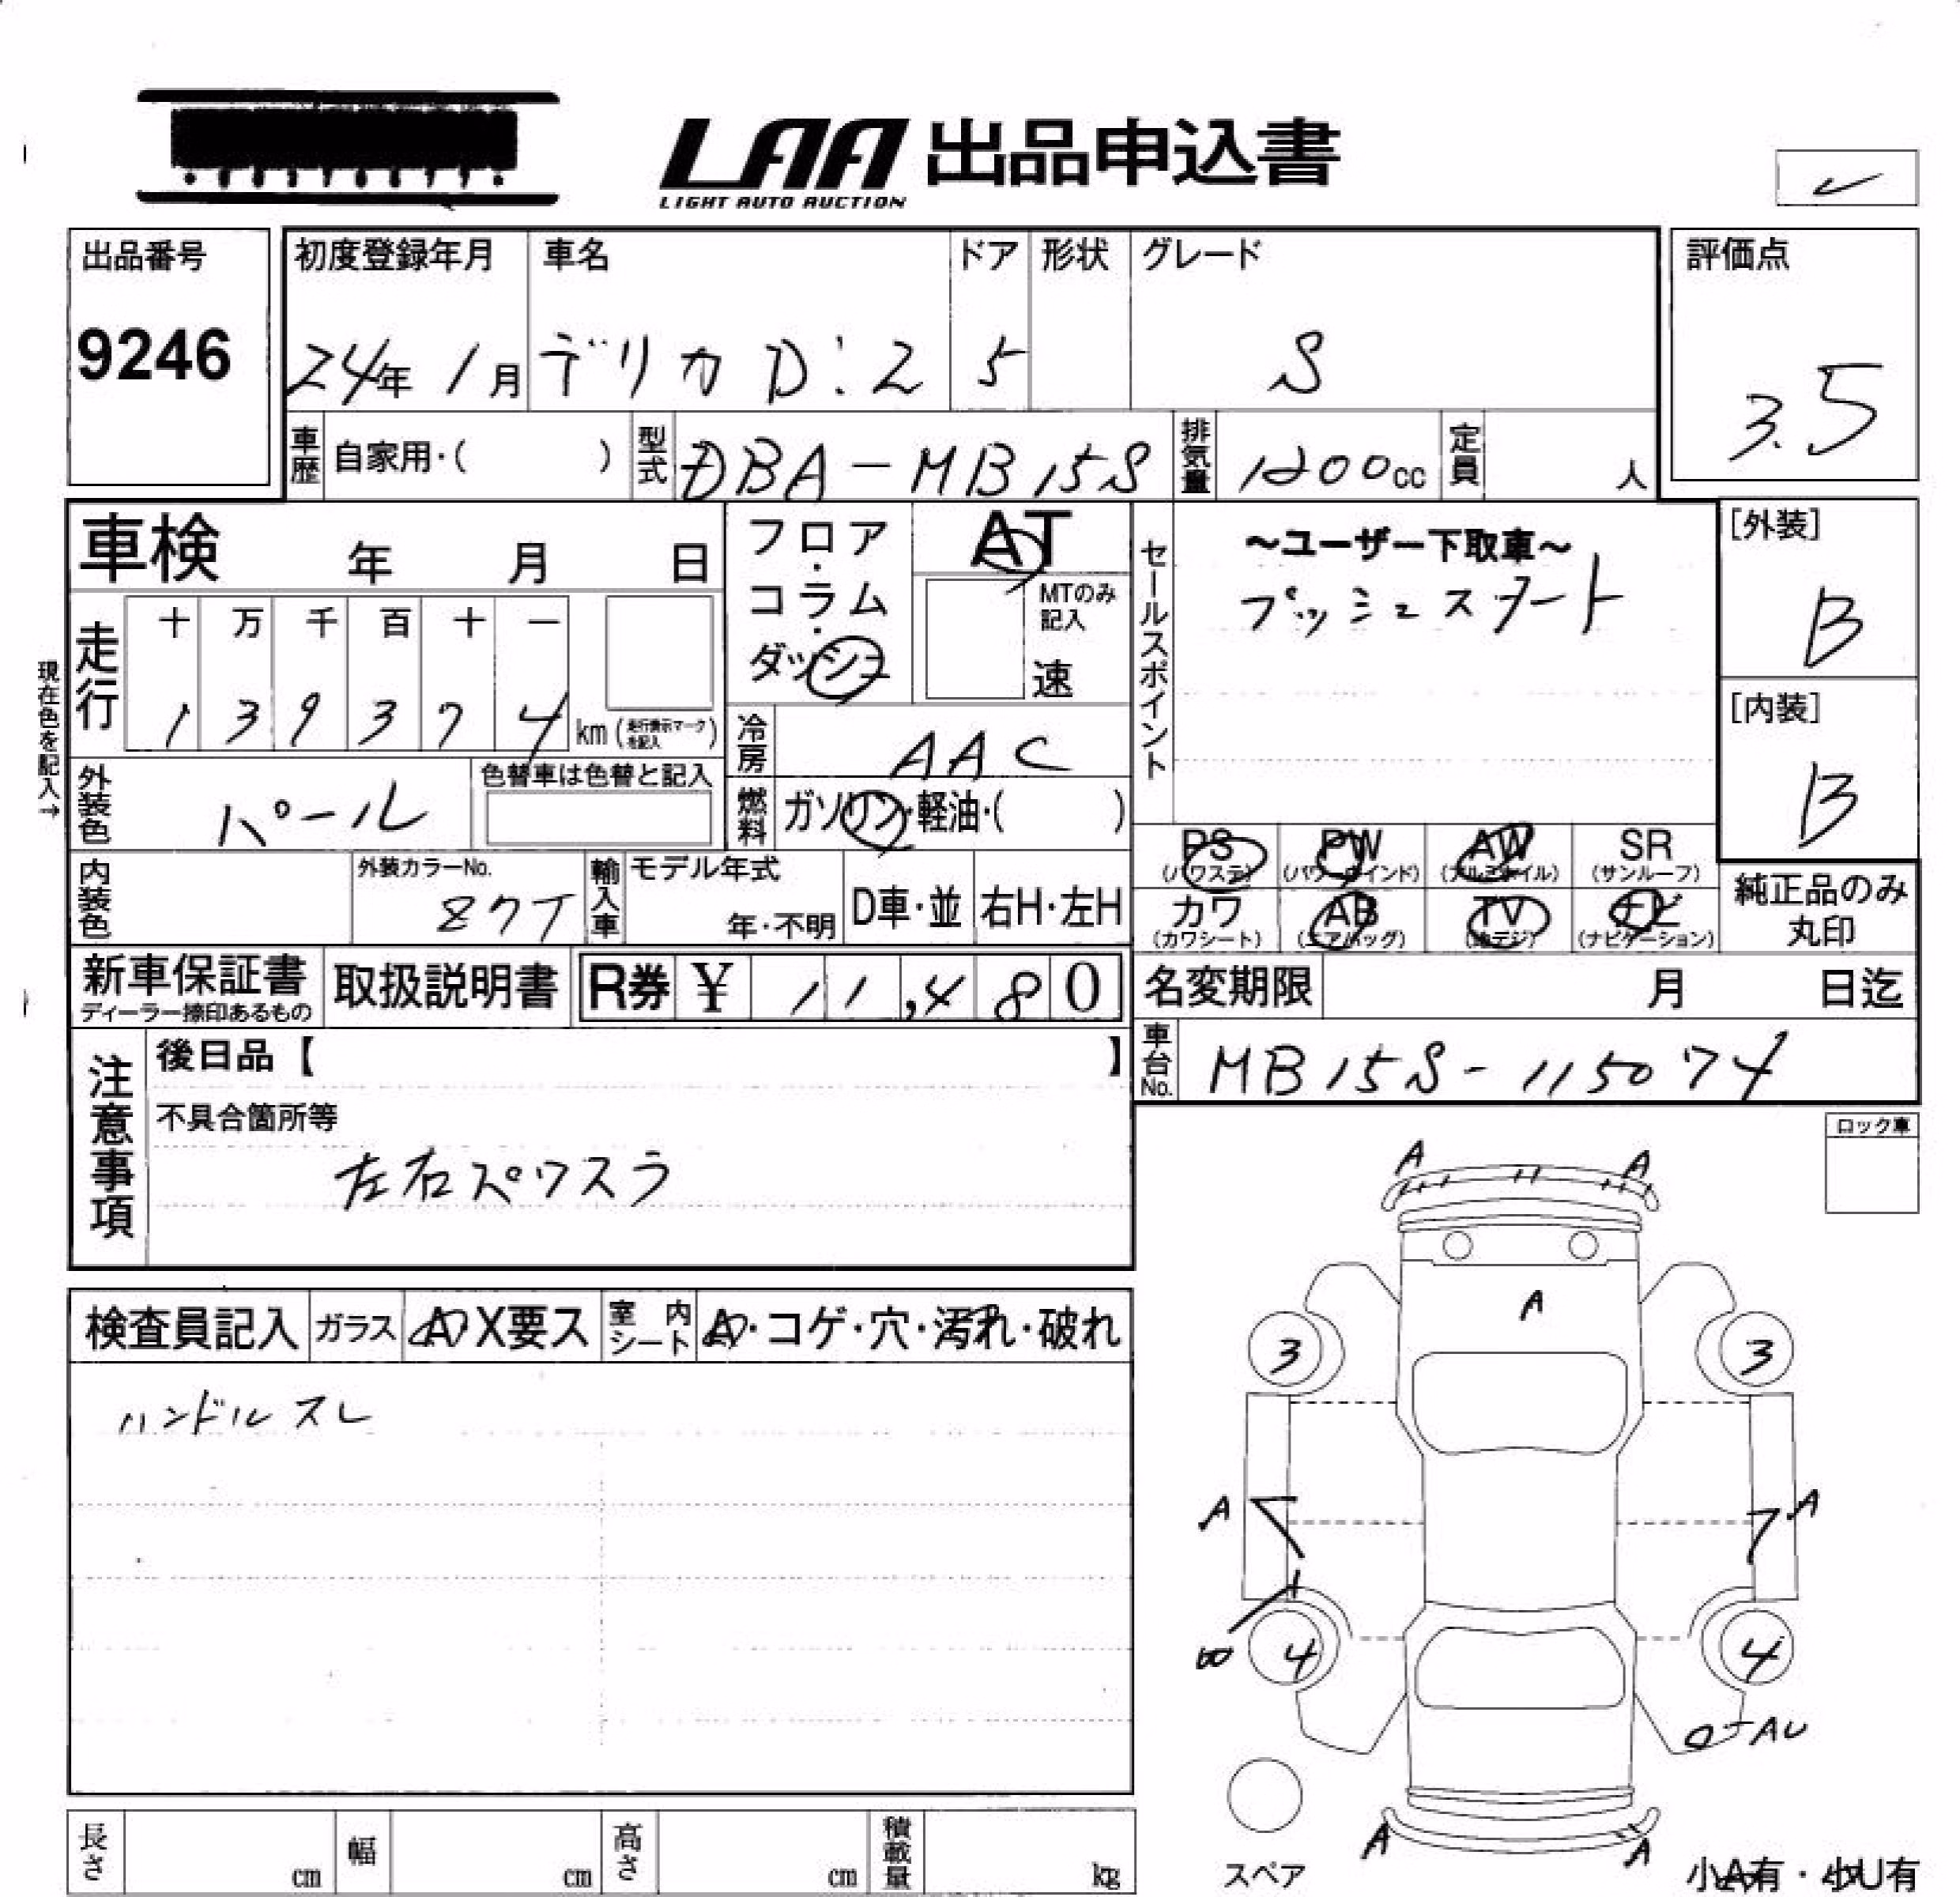 LAA 出品申込書
LIGHT AUTO AUCTION
出品番号
9246
初度登録年月 車名 ドア 形状 グレード
24年 1月 デリカD:2 5 S
評価点
3.5
車歴 自家用・( ) 型式 DBA-MB15S 排気量 1200cc 定員 人
車検 年 月 日
フロア・コラム・ダッシュ
AT
MTのみ記入
速
セールスポイント
〜ユーザー下取車〜
プッシュスタート
[外装]
B
[内装]
B
現在色を記入→
走行 十 万 千 百 十 一
1 3 9 3 7 4 km (走行表示マークを記入)
冷房 AAC
外装色 パール 色替車は色替と記入
燃料 ガソリン・軽油・( )
PS PW AW SR
(パワステ) (パワーウインド) (アルミホイル) (サンルーフ)
カワ AB TV ナビ
(カワシート) (エアバッグ) (地デジ) (ナビゲーション)
純正品のみ
丸印
内装色 外装カラーNo. Z7T 輸入車 モデル年式 年・不明 D車・並 右H・左H
新車保証書 取扱説明書 R券 ¥ 11,480
ディーラー捺印あるもの
名変期限 月 日迄
車台No. MB15S-115074
注意事項
後日品【 】
不具合箇所等
左右スペワスラ
ロック車
検査員記入 ガラス A・X要ス 室内シート A・コゲ・穴・汚れ・破れ
ハンドルスレ
A A
A
3 3
A A
4 4
AU
A A
スペア
小A有・小U有
長さ cm 幅 cm 高さ cm 積載量 kg